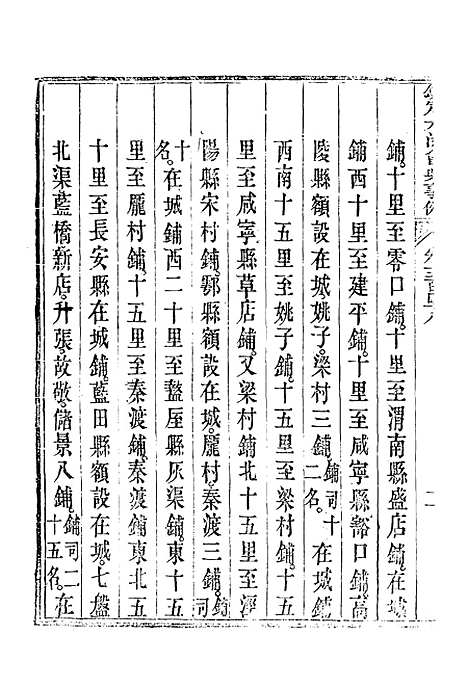 鋪。十里至零口鋪。十里至渭南縣盛店鋪。在城
鋪西十里至建平鋪。十里至咸寧縣豁口鋪。高
陵縣額設在城。姚子。梁村三鋪。鋪司十二名。在城鋪
西南十五里至姚子鋪。十五里至梁村鋪。十五
里至咸寧縣草店鋪。又梁村鋪北十五里至涇
陽縣宋村鋪。鄠縣額設在城。龐村。秦渡三鋪。鋪司
十名。在城鋪西二十里至盩厔縣厫渠鋪。東十五
里至龐村鋪。十五里至秦渡鋪。秦渡鋪東北五
十里至長安縣在城鋪。藍田縣額設在城。七盤
北渠。藍橋。新店。升張。故敬。儲景八鋪。鋪司二十五名。在